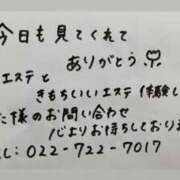 今日も見てくれて
ありがとう
エステと
きもちいいエステ体験し
た様のお問い合わせ
心よりお待ちしております
EL: 022-722-7017